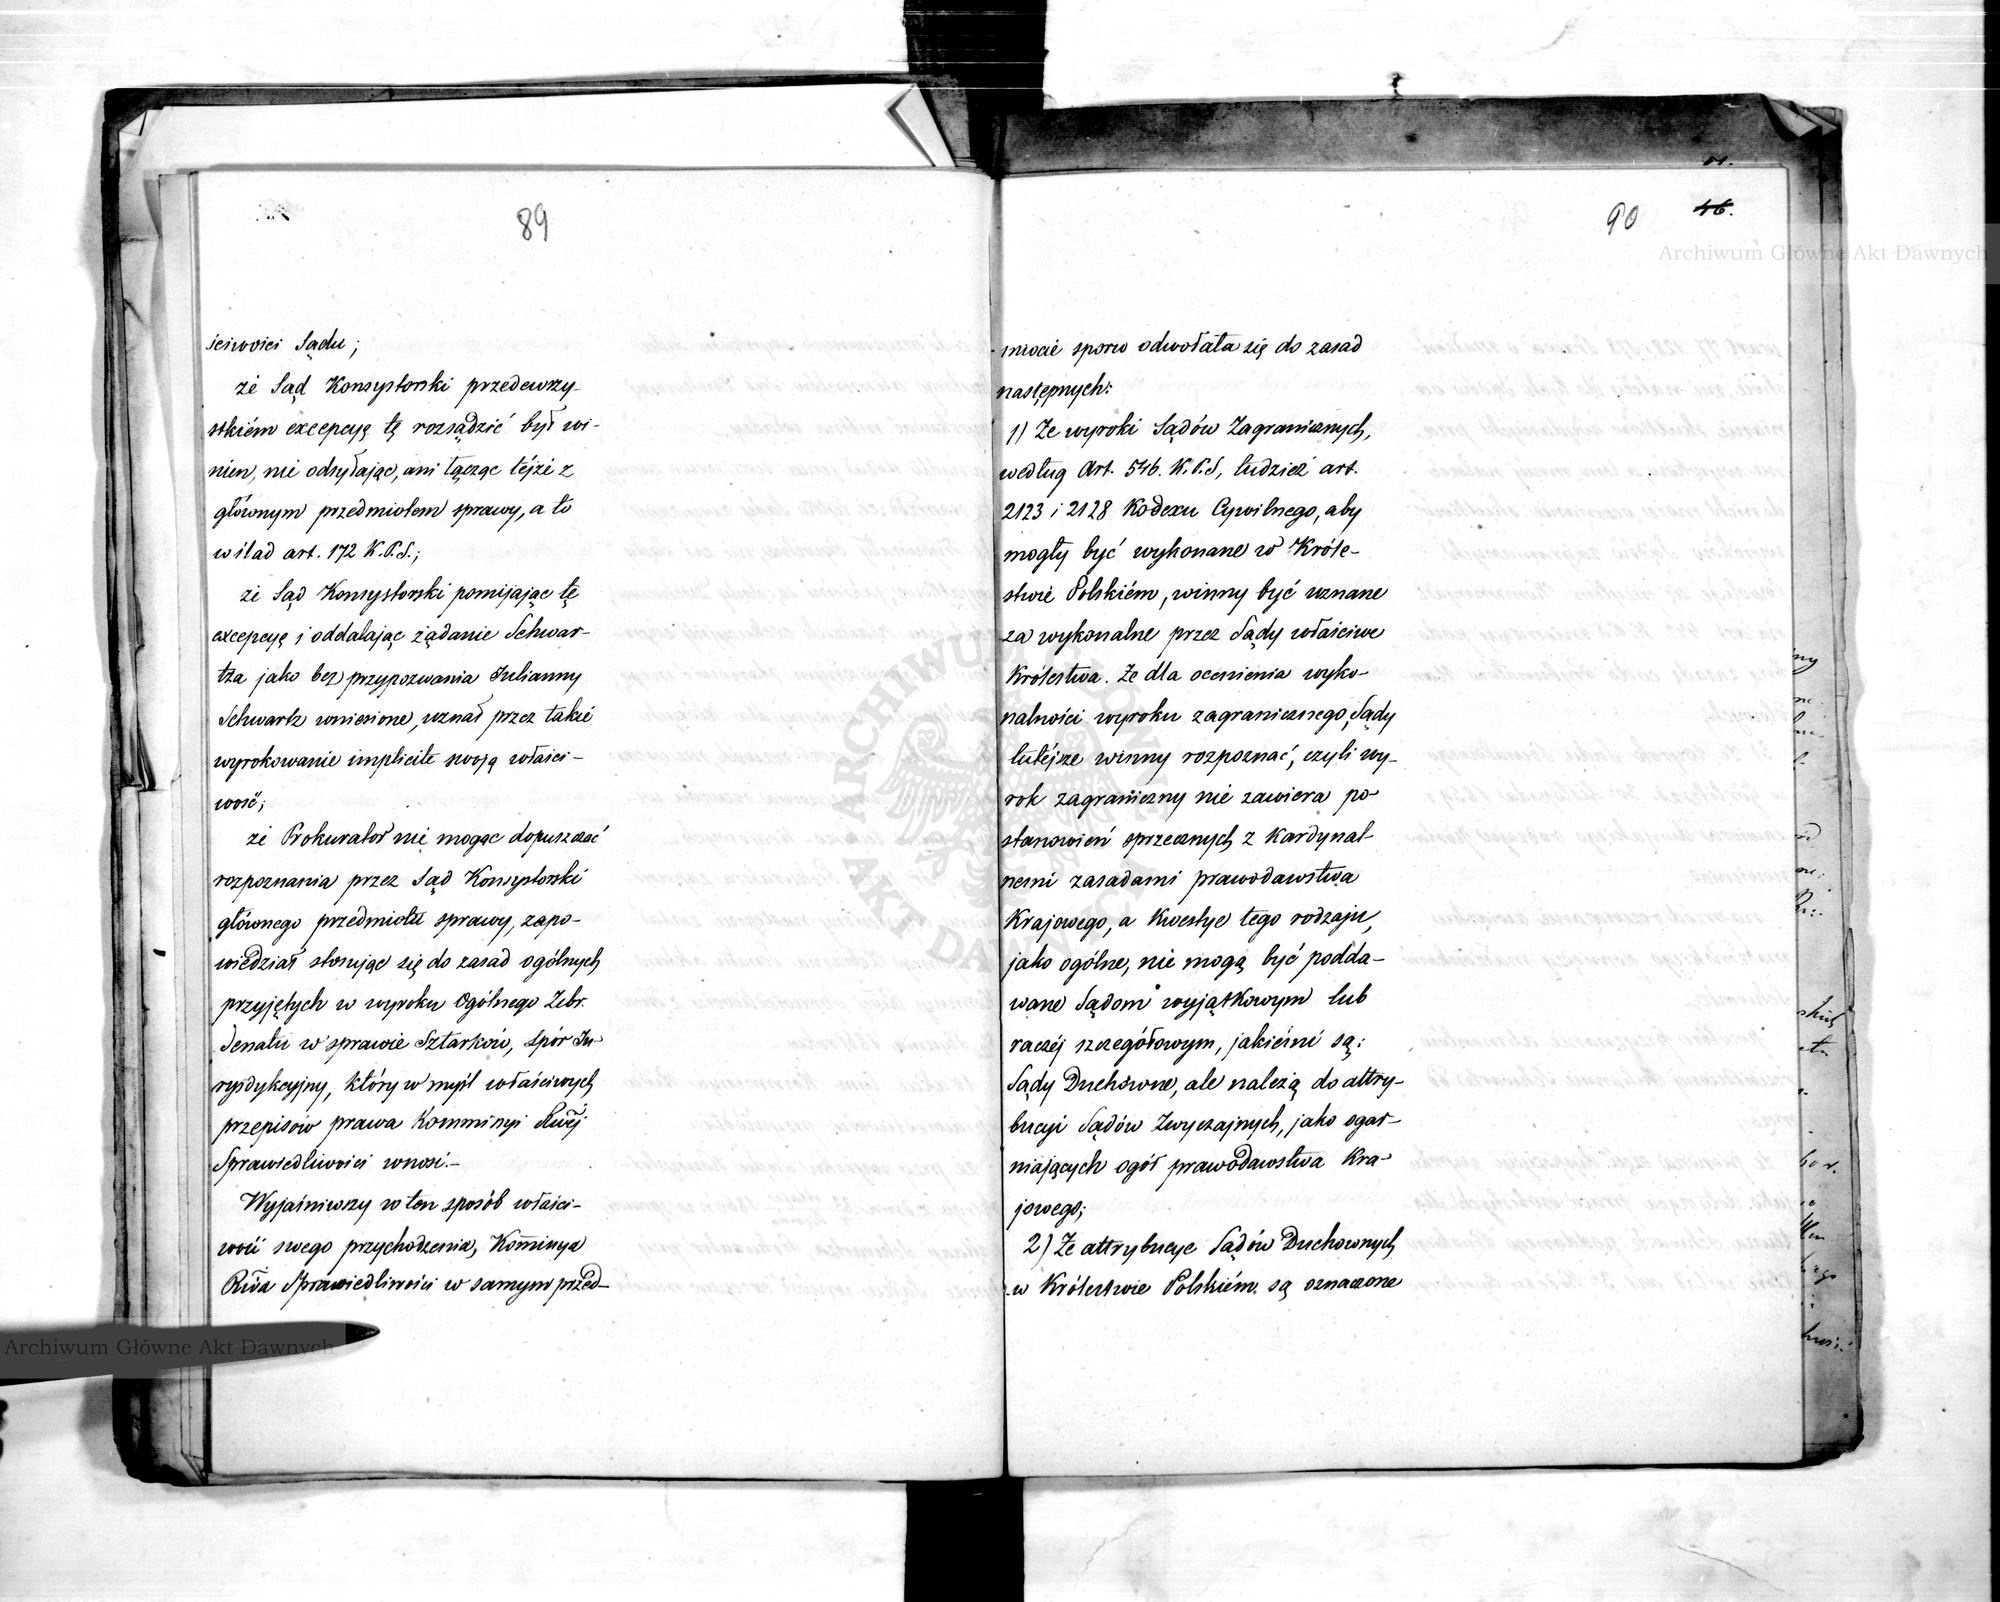 89
ściwości Sądu;
że Sąd Konsystorski przedewszy-
stkiém excepcyą tę rozsądzić był wi-
nien, nie odsyłając, ani łącząc téjże z
głównym przedmiotem sprawy, a to
w ślad art. 172 K.P.S.;
że Sąd Konsystorski pomijając tę
excepcyę i oddalając żądanie Schwar-
tza jako bez przypozwania Julianny
Schwartz wniesione, uznał przez takie
wyrokowanie implicite swoją właści-
wość;
że Prokurator nie mogąc dopuszczać
rozpoznania przez Sąd Konsystorski
głównego przedmiotu sprawy, zapo-
wiedział stosując się do zasad ogólnych
przyjętych w wyroku Ogólnego Zebr.
Senatu w sprawie Sztarków, spór Ju-
rysdykcyjny, który w myśl właściwych
przepisów prawa Kommisyi Rwéj
Sprawiedliwości wnosi.-
Wyjaśniwszy w ten sposób właści-
wość swego przychodzenia, Kommisya
Rwa Sprawiedliwości w samym przed-
90
46.
miocie sporu odwołała się do zasad
następnych:
1) Że wyroki Sądów Zagranicznych,
według Art. 546. K.P.S, tudzież art.
2123 i 2128 Kodexu Cywilnego, aby
mogły być wykonane w Króle-
stwie Polskiém, winny być uznane
za wykonalne przez Sądy właściwe
Królestwa. Że dla ocenienia wyko-
nalności wyroku zagranicznego, Sądy
tutéjsze winny rozpoznać, czyli wy-
rok zagraniczny nie zawiera po-
stanowień sprzecznych z Kardynal-
nemi zasadami prawodawstwa
Krajowego, a Kwestye tego rodzaju,
jako ogólne, nie mogą być podda-
wane Sądom wyjątkowym lub
raczéj szczegółowym, jakiémi są:
Sądy Duchowne, ale należą do attry-
bucyi Sądów Zwyczajnych, jako ogar-
niających ogół prawodawstwa Kra-
jowego;
2) Że attrybucye Sądów Duchownych
w Królestwie Polskiém są oznaczone
Archiwum Główne Akt Dawnych
Archiwum Główne Akt Dawnych
ARCHIWUM
AKT DAWNYCH